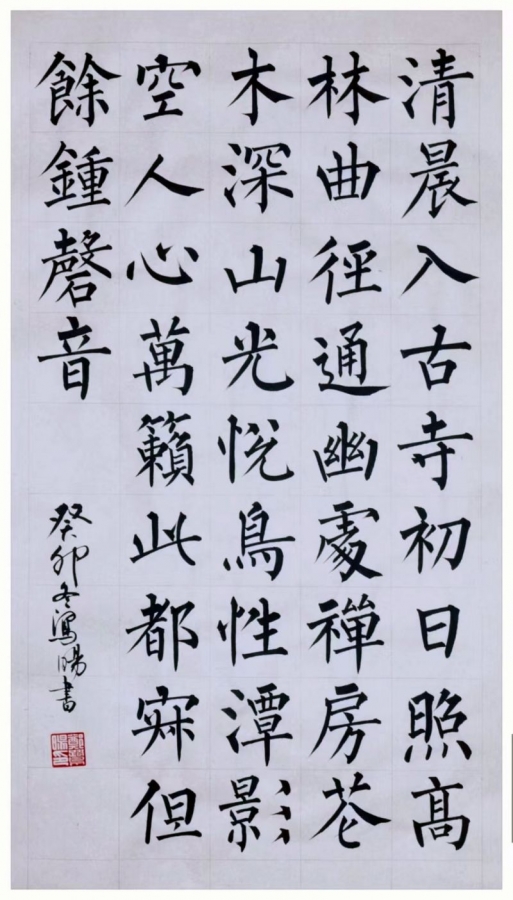 清晨入古寺初日照髙
林曲徑通幽處禪房芲
木深山光悅鳥性潭影
空人心萬籟此都寂但
餘鍾磬音
癸卯冬鴻暘書